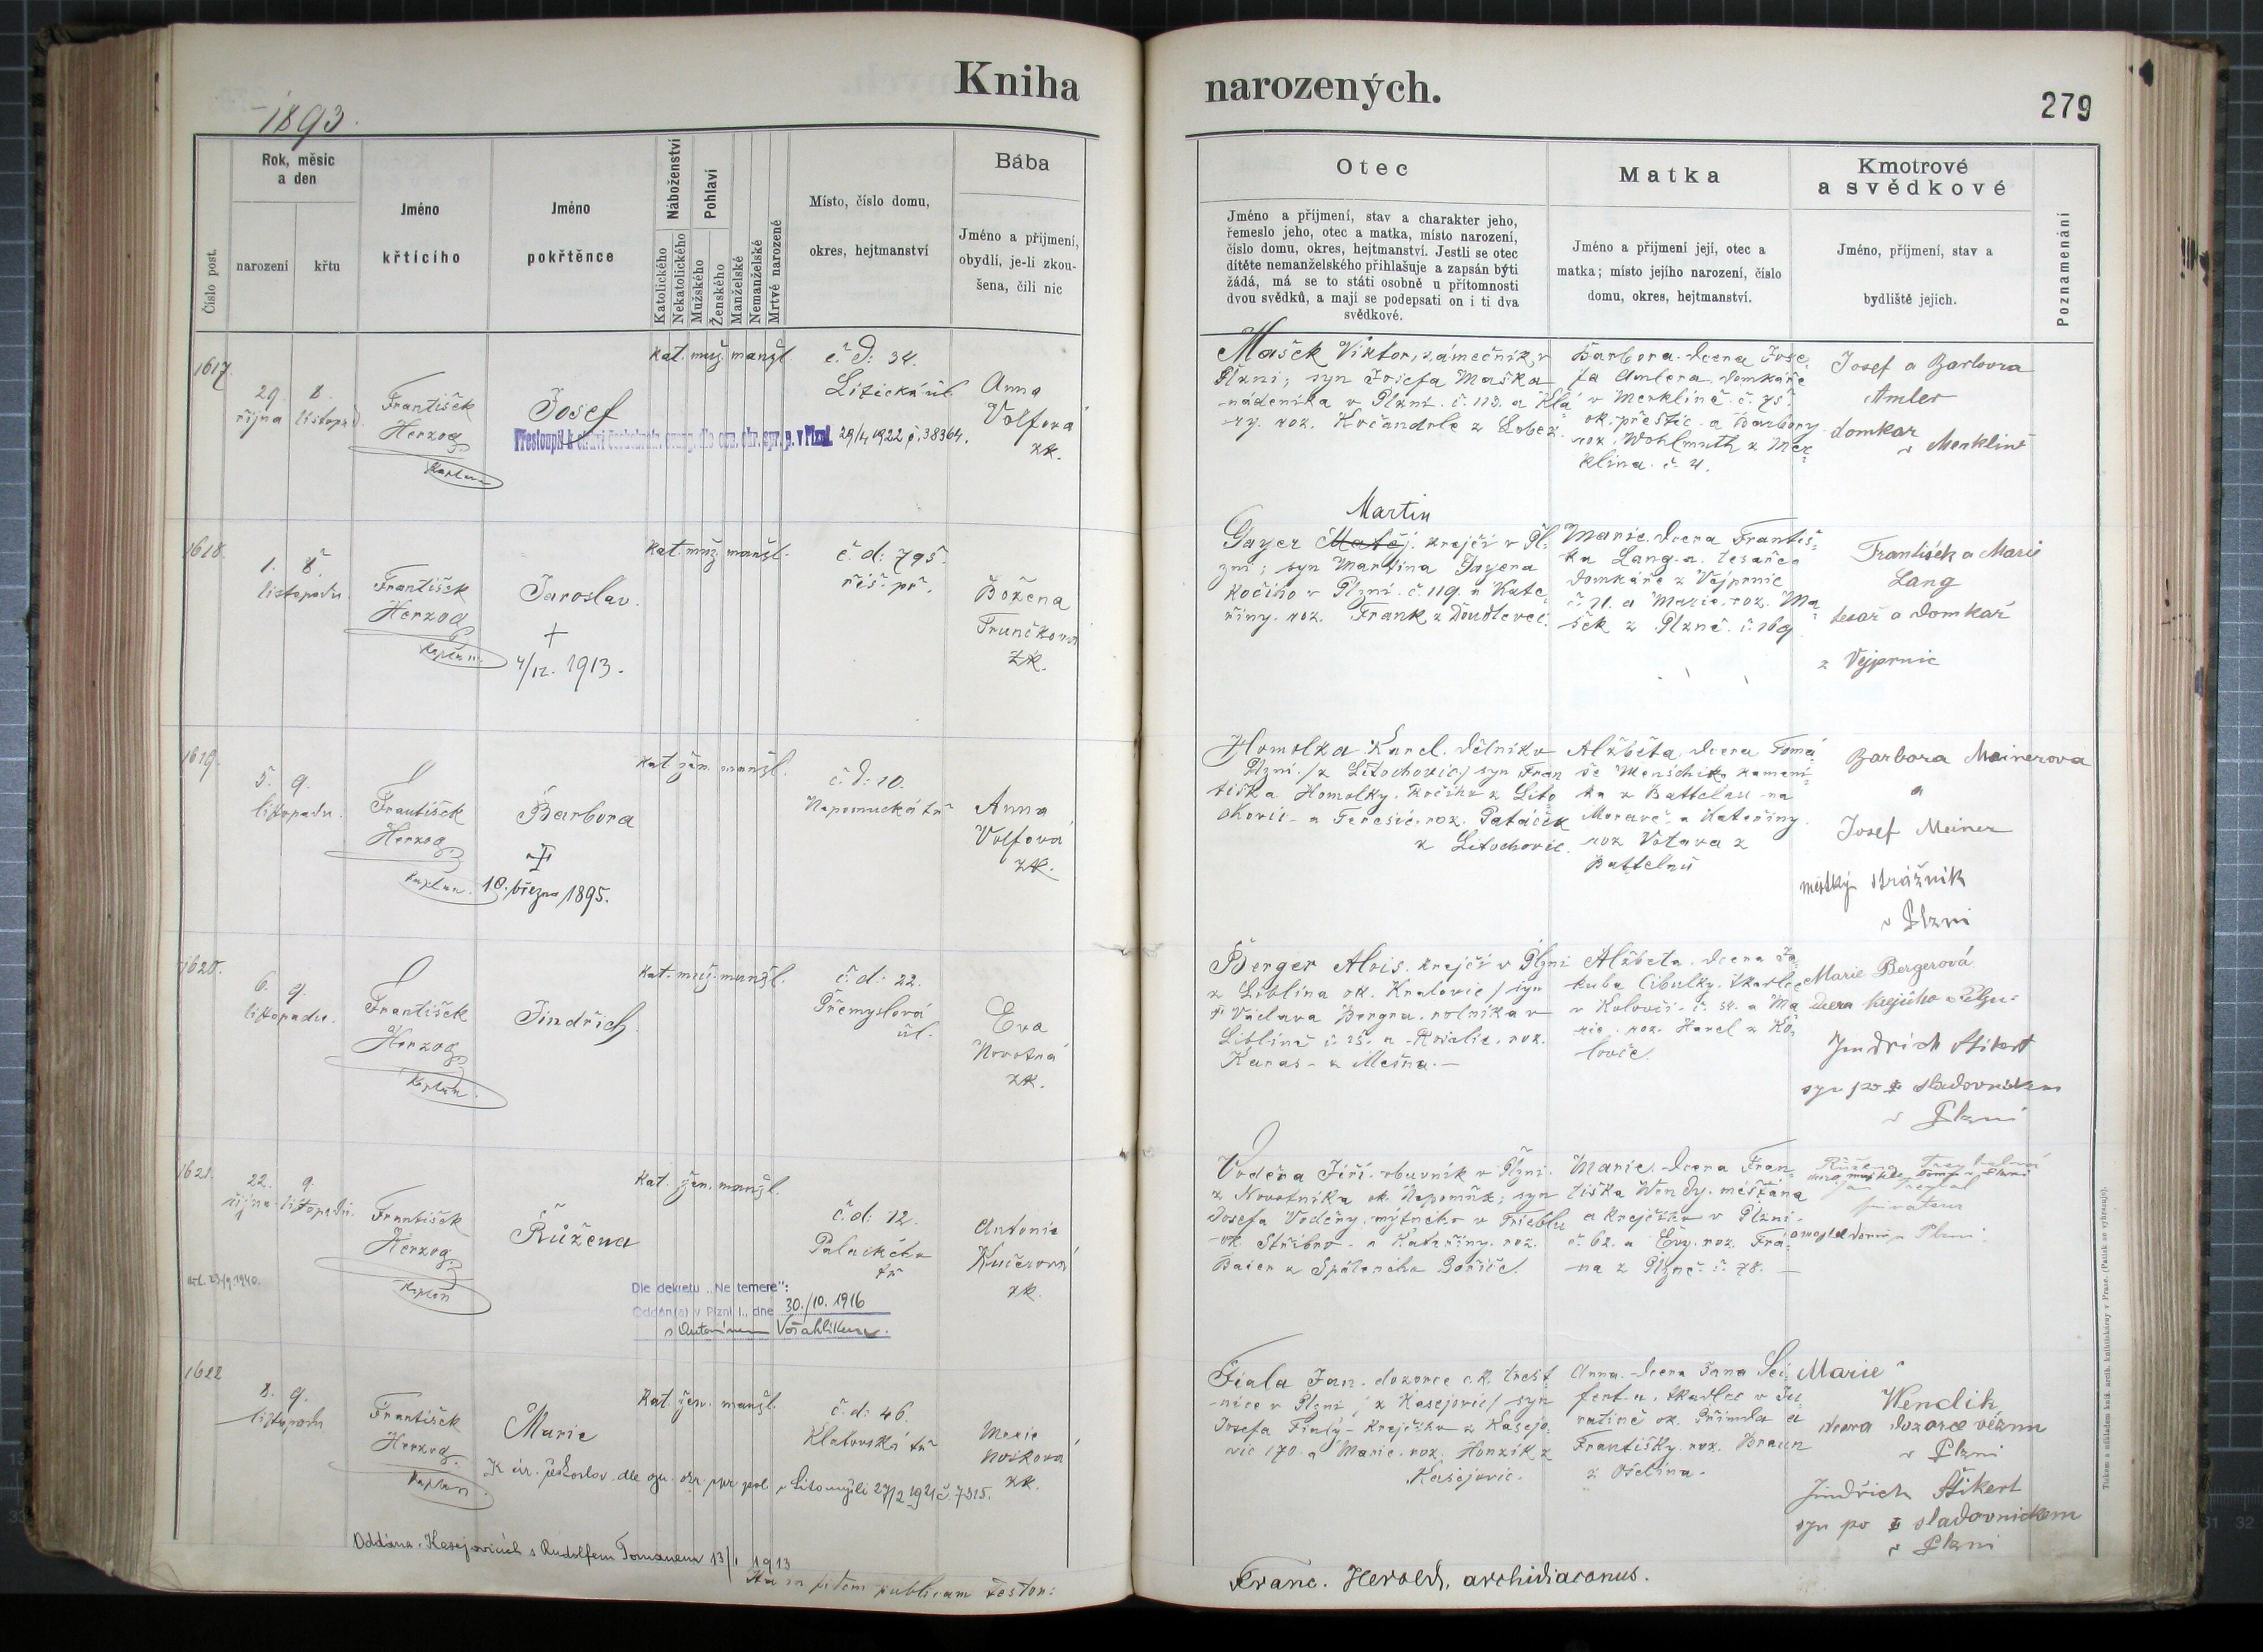 Kniha
1893.
Číslo post.
Rok, měsíc
a den
narození
křtu
Jméno
křtícího
Jméno
pokřtěnce
Náboženství
Katolického
Nekatolického
Pohlaví
Mužského
Ženského
Manželské
Nemanželské
Mrtvě narozené
Místo, číslo domu,
okres, hejtmanství
Bába
Jméno a příjmení,
obydlí, je-li zkou-
šena, čili nic
1617.
29. 8.
října listopad.
František
Herzog
Kaplan
Josef
kat. muž. manžl.
č. d: 34.
Litická úl.
Anna
Volfová
zk.
29/4 1922 č. 38364.
1618.
1. 8.
listopadu.
František
Herzog
Kaplan
Jaroslav.
+
4/12. 1913.
kat. muž. manžl.
č. d: 795.
říš. př.
Božena
zk.
1619.
5. 9.
listopadu.
František
Herzog
Kaplan.
Barbora
10. března 1895.
kat. žen. manžl.
č. d: 10.
Nepomucká tř.
Anna
Volfová
zk.
1620.
6. 9.
listopadu.
František
Herzog
Kaplan.
Jindřich.
kat. muž. manžl.
č. d: 22.
Přemyslová
úl.
Eva
Novotná
zk.
1621.
22. 9.
října listopadu.
František
Herzog
Kaplan
Růžena
kat. žen. manžl.
č. d: 12.
Palackého
tř.
Antonie
Kučerová
zk.
Dle dekretu „Ne temere":
Oddán(a) v Plzni I., dne 30./10. 1916
s Antonínem
1622
8. 9.
listopadu
František
Herzog.
Kaplan.
Marie
kat. žen. manžl.
č. d: 46.
Klatovská tř.
Marie
zk.
v Litomyšli 27/2 1921 č. 7315.
Oddána v Kasejovicích s Rudolfem Tomanem 13/1 1913
narozených.
279
Otec
Jméno a příjmení, stav a charakter jeho,
řemeslo jeho, otec a matka, místo narození,
číslo domu, okres, hejtmanství. Jestli se otec
dítěte nemanželského přihlašuje a zapsán býti
žádá, má se to státi osobně u přítomnosti
dvou svědků, a mají se podepsati on i ti dva
svědkové.
Matka
Jméno a příjmení její, otec a
matka; místo jejího narození, číslo
domu, okres, hejtmanství.
Kmotrové
a svědkové
Jméno, příjmení, stav a
bydliště jejich.
Poznamenání
Mašek Viktor, zámečník v
Plzni; syn Josefa Maška
nádeníka v Plzni. č. 113. a Klá
ry. roz. Kočandrle z Lobez.
Barbora. dcera Jose
fa Amlera. domkáře
v Merklíně. č. 75.
ok. přeštic. a Barbory
roz. Wohlmuth z Mer
klína. č. 4.
Josef a Barbora
Amler
domkar
v Merklíně
Martin
Gayer Matěj. krejčí v Pl-
zni; syn Martina Gayera
kočího v Plzni. č. 119. a Kate-
řiny. roz. Frank z Doudlevec.
Marie. dcera Františ-
ka Lang. a. tesaře a
domkáře z Vejprnic
č. 71. a Marie. roz. Ma
šek z Plzně. č. 169
František a Marie
Lang
tesař a domkař
z Vejprnic
Homolka Karel. dělník v
Plzni. /z Litochovic/ syn Fran
tiška Homolky. kočího z Lito
chovic. a Teresie. roz. Pataček
z Litochovic.
Alžběta. dcera Tomá
še Menschik. kameni-
ka z Battelau na
Moravě. a Kateřiny.
roz Votava z
Battelau
Barbora Meinerova
a
Josef Meiner
městský strážník
v Plzni
Berger Alois. krejčí v Plzni
z Liblína ok. Kralovic / syn
Václava Bergra. rolníka v
Liblíně č. 25. a Rosalie. roz.
Karas - z Mešna. -
Alžběta. dcera Ja
kuba Cibulky. tkadlce
v Kolovči. č. 54. a Ma
rie. roz. Havel z Ko
lovče.
Marie Bergerová
dcera krejčího v Plzni
Jindřich Stikert
syn po sladovnikem
v Plzni
Voděra Jiří. obuvník v Plzni.
z Novotníka ok. Nepomuk; syn
Josefa Voděry. mýtného v Třieblu
ok. Stříbro. a Kateřiny. roz.
Baier z Spáleného Poříčí.
Marie. dcera Fran
tiška Wendy. měšťana
a krejčího v Plzni.
č. 62. a Evy. roz. Frá-
na z Plzně. č. 78. -
Fiala Jan. dozorce c. k. trest-
nice v Plzni / z Kasejovic / syn
Josefa Fialy - krejčího z Kasejo-
vic 170 a Marie. roz. Honzík z
Kasejovic.
Anna. dcera Jana Sei
fert. a. tkadlec v Ju-
ratině ok. Přimda a
Františky. roz. Braun
z Ošelína.
Marie
Wendik
dcera dozorce věznu
v Plzni
Jindřich Stikert
syn po sladovnickem
v Plzni
Franc. Herold, archidiaconus.